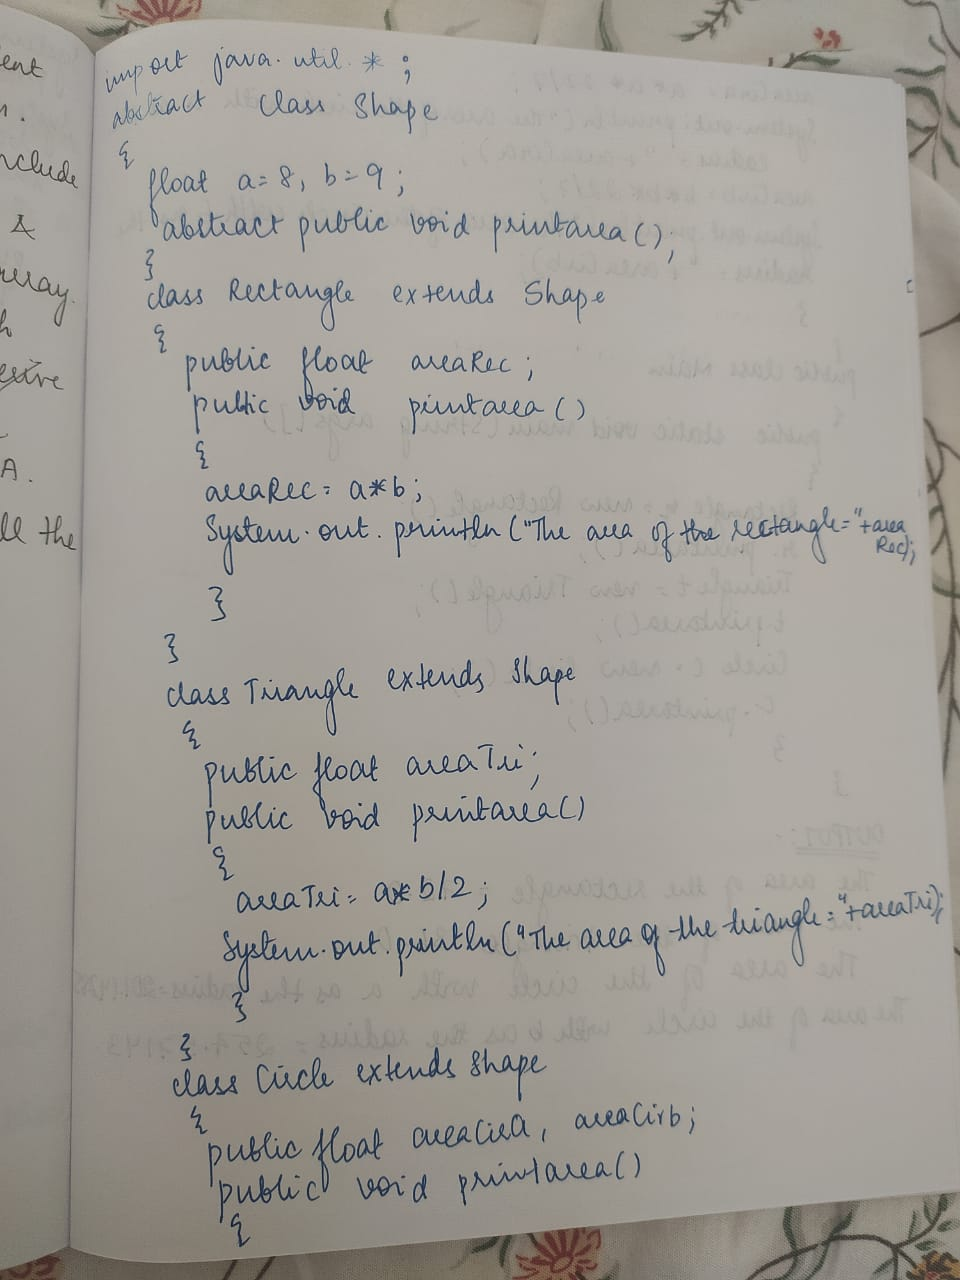 ent
n.
nclude
&
rray.
h
A.
ll the
import java.util.*;
abstract class Shape
{
float a=8, b=9;
abstract public void printarea();
}
class Rectangle extends Shape
{
public float areaRec;
public void printarea()
{
areaRec = a*b;
System.out.println("The area of the rectangle="+area
Rec);
}
}
class Triangle extends Shape
{
public float areaTri;
public void printarea()
{
areaTri= a*b/2;
System.out.println("The area of the triangle="+areaTri);
}
}
class Circle extends Shape
{
public float areaCira, areaCirb;
public void printarea()
{